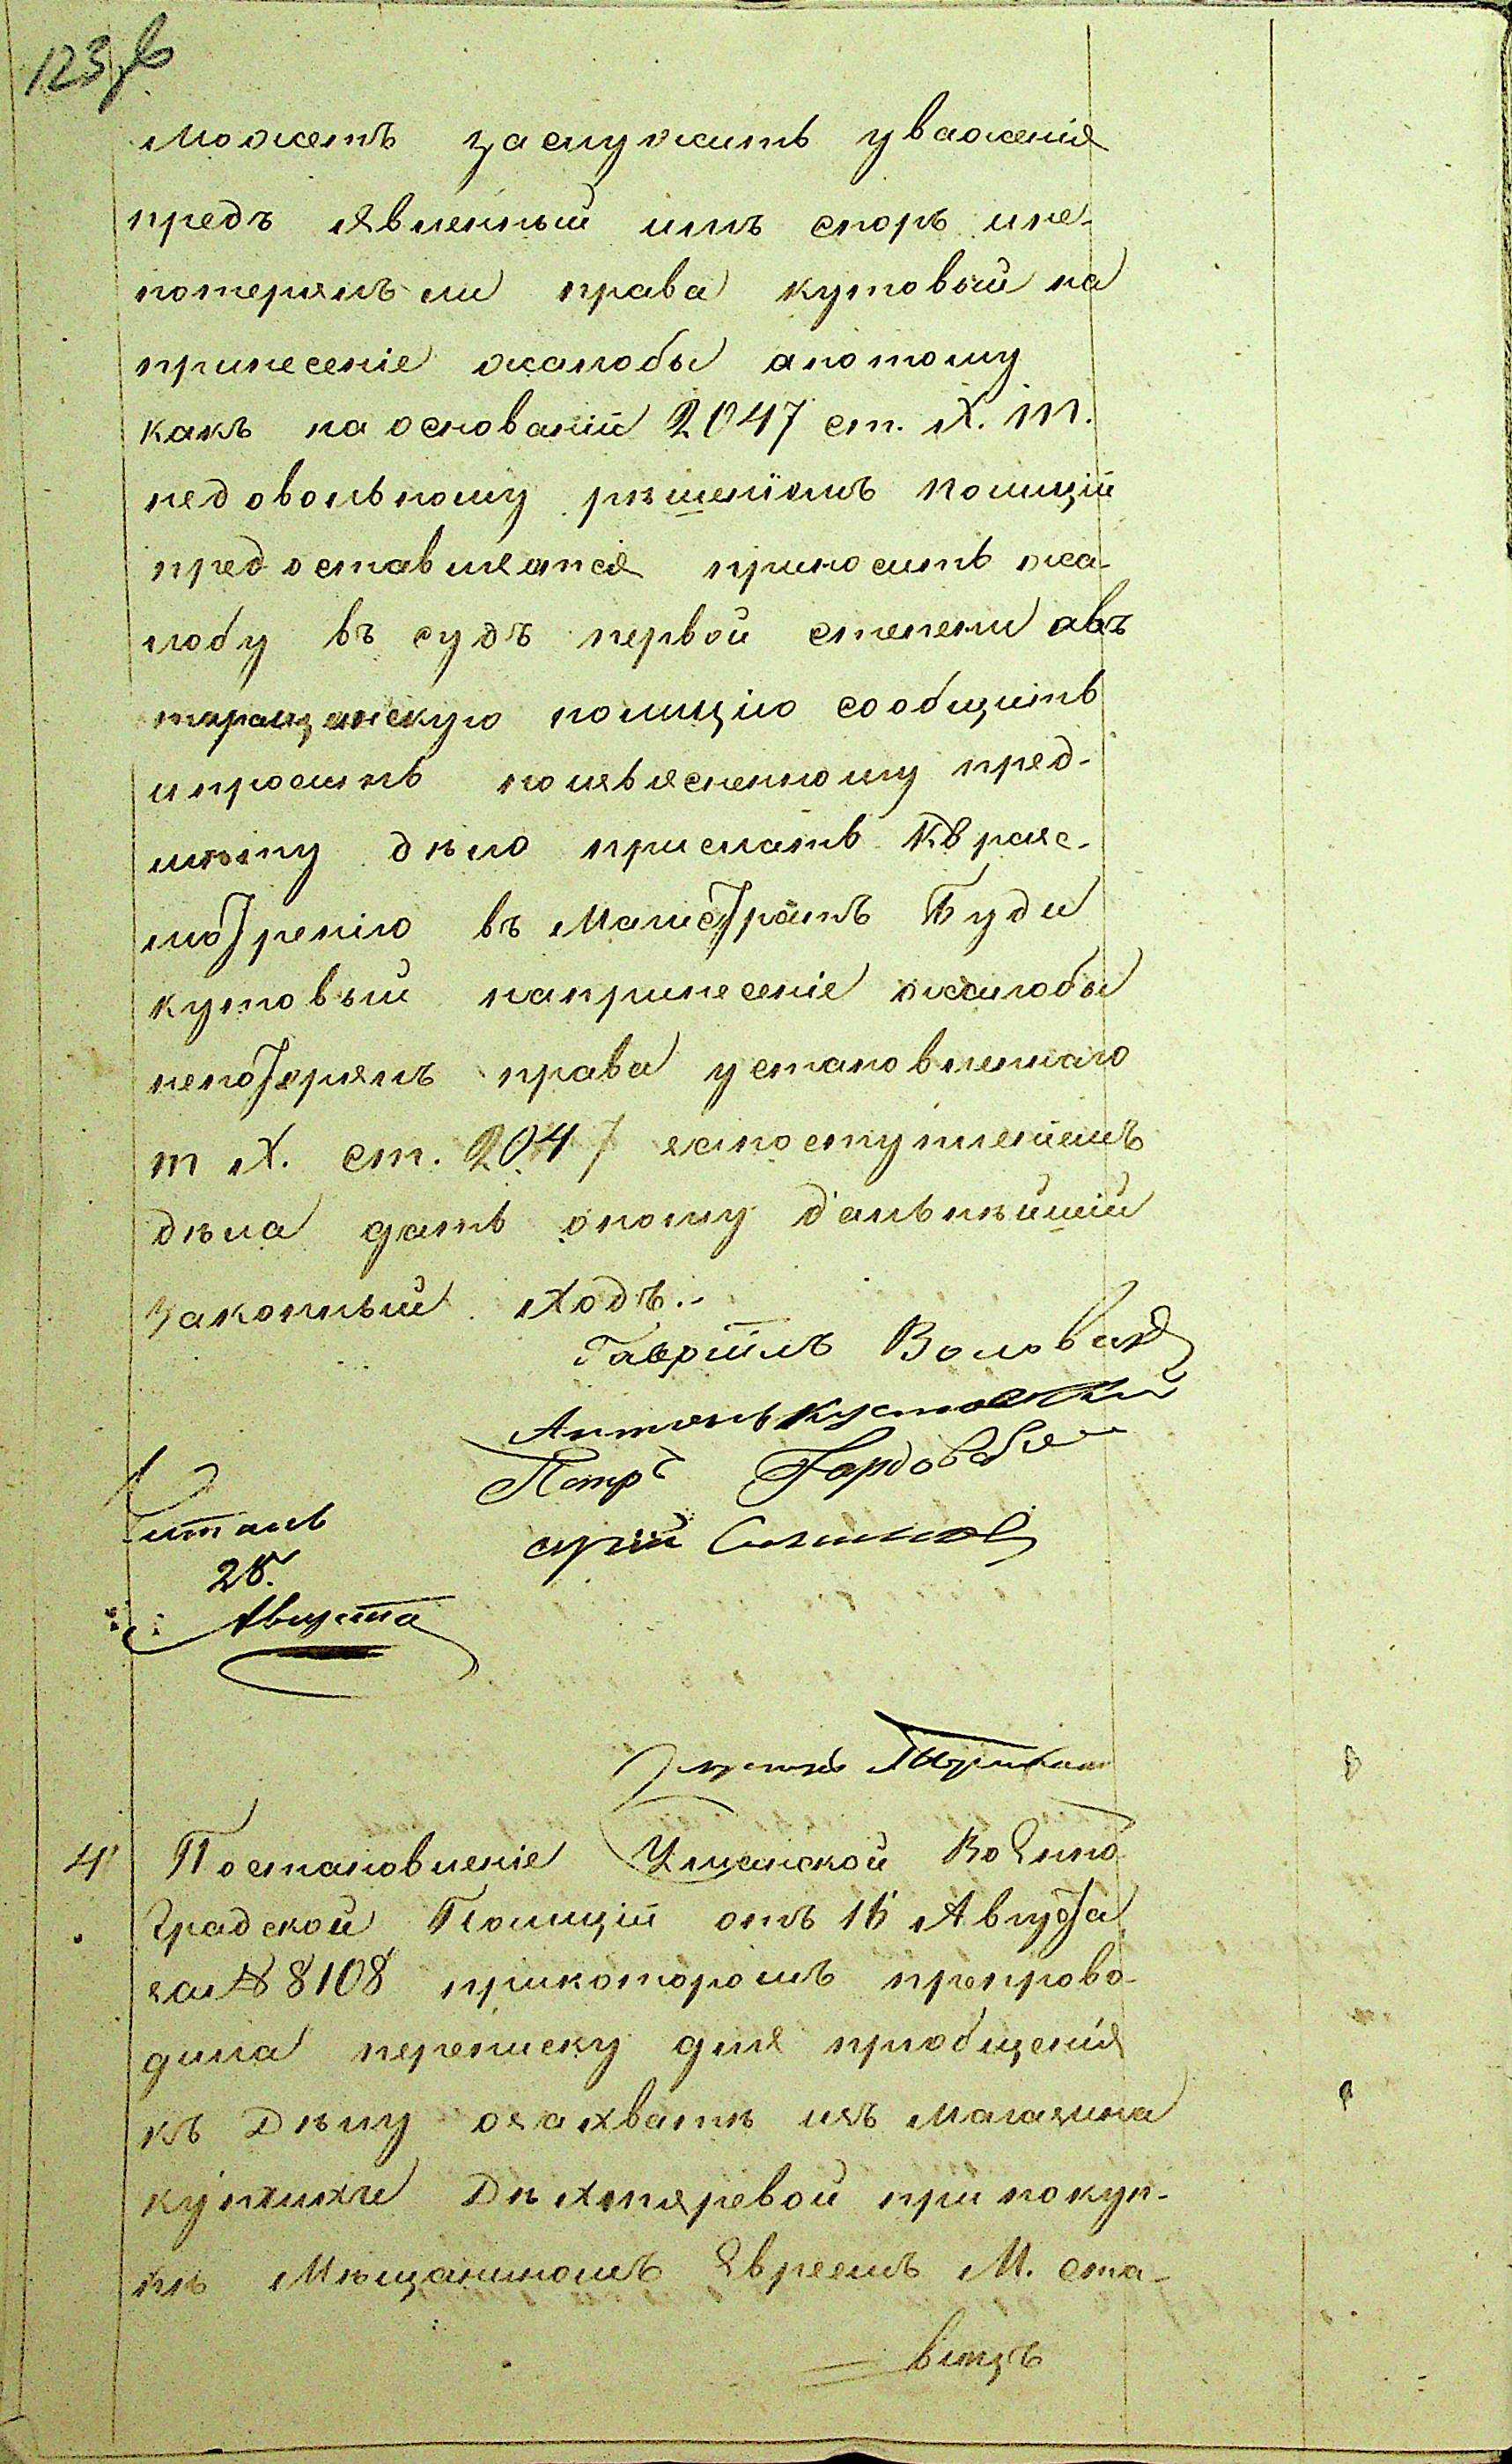 123 об
можетъ заслужить уваженія
предъ явленный имъ споръ ине-
потерялъ ли права кутовый на
принесеніе жалобы апотому
какъ на основаніи 2047 ст. X. т.
недовольному рѣшеніемъ полиціи
предоставляется приносить жа-
лобу въ судъ первой степени авъ
таращанскую полицію сообщить
ипросить поизъясненному пред-
мѣту дѣло прислать къ разс-
мотренію въ Магистратъ Буде
кутовый напринесеніе жалобы
непотерялъ права установленнаго
т X. ст. 2047 запоступленіемъ
дѣла дать оному дальнѣйшій
законный ходъ.-
Гавріилъ
Антонъ
Петръ
Читалъ
28.
Августа
4 Постановленіе Уманской
Градской Полиціи отъ 16 Августа
за № 8108 прикоторомъ препрово-
дила переписку для пріобщенія
къ Дѣлу озахватѣ изъ Магазина
купчихи Дѣхтяревой при покуп-
кѣ Мѣщаниномъ Евреемъ М. ста-
вицъ